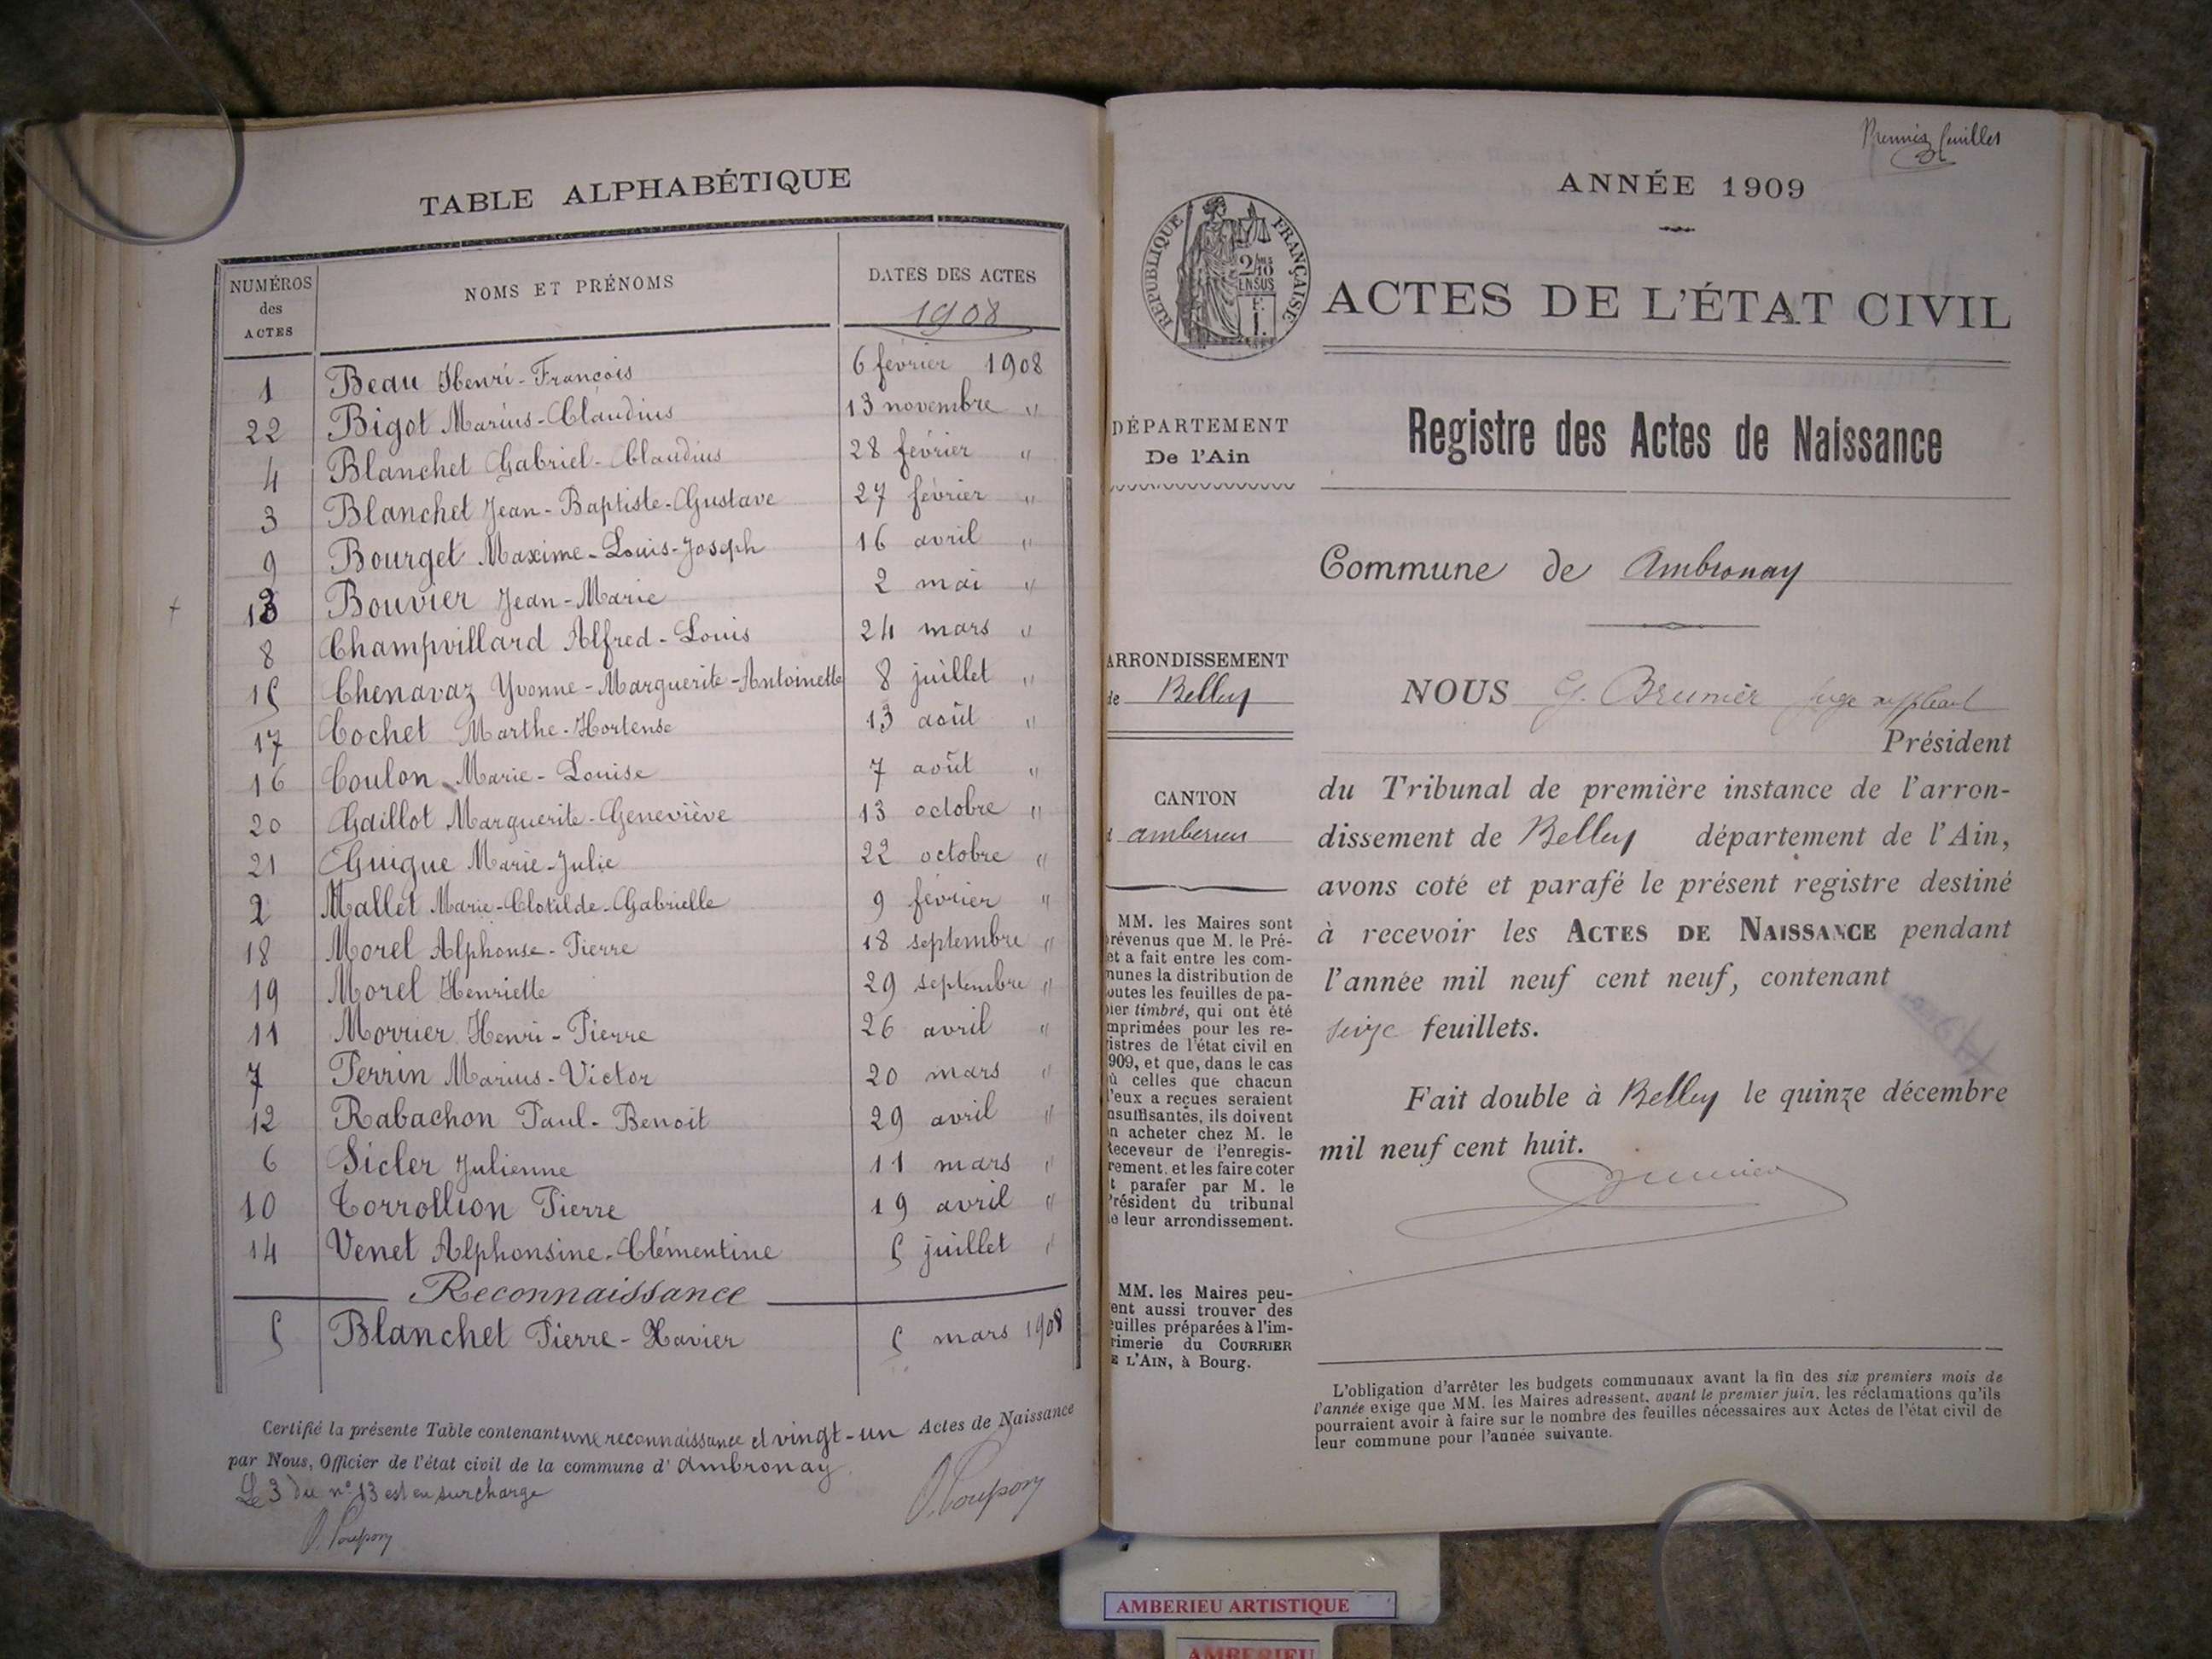 TABLE ALPHABÉTIQUE
NUMÉROS des ACTES NOMS ET PRÉNOMS DATES DES ACTES
1908
1 Beau Henri-François 6 février 1908
22 Bigot Marius-Claudius 13 novembre "
4 Blanchet Gabriel-Claudius 28 février "
3 Blanchet Jean-Baptiste-Gustave 27 février "
9 Bourget Maxime-Louis-Joseph 16 avril "
+ 13 Bouvier Jean-Marie 2 mai "
8 Champvillard Alfred-Louis 24 mars "
15 Chenavaz Yvonne-Marguerite-Antoinette 8 juillet "
17 Cochet Marthe-Hortense 13 août "
16 Coulon Marie-Louise 7 août "
20 Gaillot Marguerite-Geneviève 13 octobre "
21 Guigue Marie-Julie 22 octobre "
2 Mallet Marie-Clotilde-Gabrielle 9 février "
18 Morel Alphonse-Pierre 18 septembre "
19 Morel Henriette 29 septembre "
11 Morrier Henri-Pierre 26 avril "
7 Perrin Marius-Victor 20 mars "
12 Rabachon Paul-Benoit 29 avril "
6 Sicler Julienne 11 mars "
10 Torrollion Pierre 19 avril "
14 Venet Alphonsine-Clémentine 5 juillet "
Reconnaissance
5 Blanchet Pierre-Xavier 5 mars 1908
Certifié la présente Table contenant une reconnaissance et vingt-un Actes de Naissance
par Nous, Officier de l'état civil de la commune d' Ambronay
Le 3 du n° 13 est en surcharge
Premier feuillet
ANNÉE 1909
RÉPUBLIQUE FRANÇAISE
ACTES DE L'ÉTAT CIVIL
DÉPARTEMENT
De l'Ain
Registre des Actes de Naissance
Commune de Ambronay
ARRONDISSEMENT
de Belley
CANTON
amberieu
MM. les Maires sont
prévenus que M. le Pré-
et a fait entre les com-
munes la distribution de
outes les feuilles de pa-
pier timbré, qui ont été
imprimées pour les re-
istres de l'état civil en
909, et que, dans le cas
où celles que chacun
d'eux a reçues seraient
nsuffisantes, ils doivent
n acheter chez M. le
Receveur de l'enregis-
rement, et les faire coter
t parafer par M. le
Président du tribunal
e leur arrondissement.
MM. les Maires peu-
ent aussi trouver des
euilles préparées à l'im-
rimerie du COURRIER
E L'AIN, à Bourg.
NOUS G. Brunier juge suppléant
Président
du Tribunal de première instance de l'arron-
dissement de Belley département de l'Ain,
avons coté et parafé le présent registre destiné
à recevoir les ACTES DE NAISSANCE pendant
l'année mil neuf cent neuf, contenant
seize feuillets.
Fait double à Belley le quinze décembre
mil neuf cent huit.
L'obligation d'arrêter les budgets communaux avant la fin des six premiers mois de
l'année exige que MM. les Maires adressent, avant le premier juin, les réclamations qu'ils
pourraient avoir à faire sur le nombre des feuilles nécessaires aux Actes de l'état civil de
leur commune pour l'année suivante.
AMBERIEU ARTISTIQUE
AMBERIEU